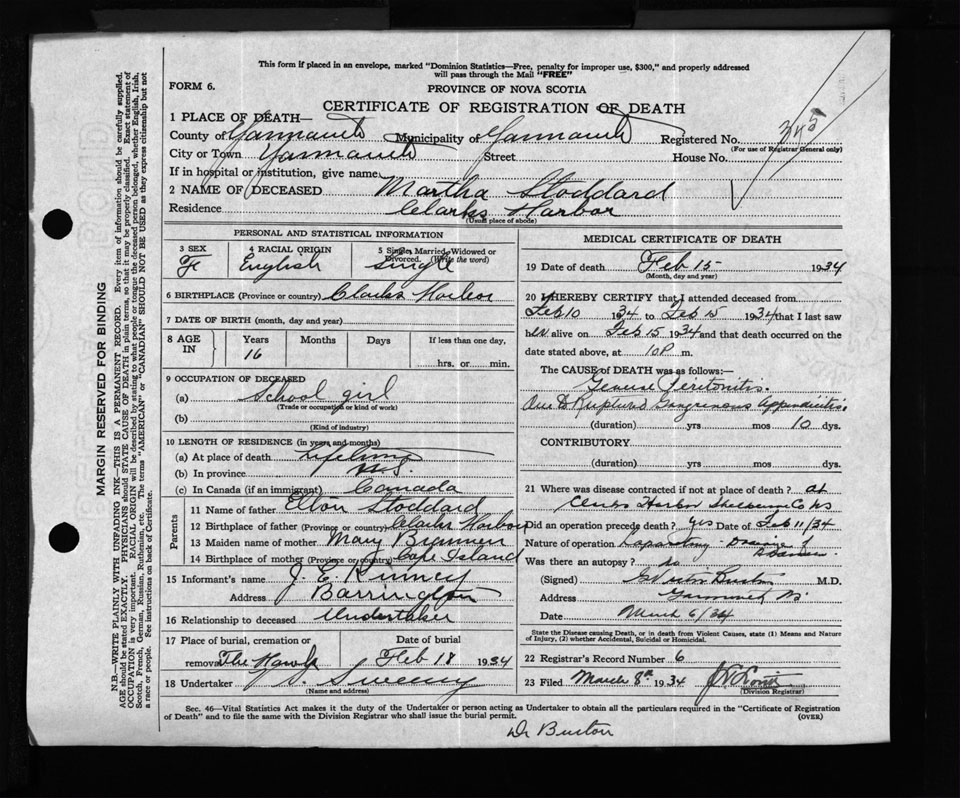 This form if placed in an envelope, marked "Dominion Statistics—Free, penalty for improper use, $300," and properly addressed
will pass through the Mail "FREE"
FORM 6.
PROVINCE OF NOVA SCOTIA
CERTIFICATE OF REGISTRATION OF DEATH
1 PLACE OF DEATH—
County of Yarmouth Municipality of Yarmouth Registered No. 345
(For use of Registrar General only)
City or Town Yarmouth Street House No.
If in hospital or institution, give name
2 NAME OF DECEASED Martha Stoddard
Residence Clarks Harbor
(Usual place of abode)
PERSONAL AND STATISTICAL INFORMATION
3 SEX 4 RACIAL ORIGIN 5 Single, Married, Widowed or Divorced. (Write the word)
F English Single
6 BIRTHPLACE (Province or country) Clarks Harbor
7 DATE OF BIRTH (month, day and year)
8 AGE IN Years Months Days If less than one day,
16 hrs. or min.
9 OCCUPATION OF DECEASED
(a) School girl
(Trade or occupation or kind of work)
(b)
(Kind of industry)
10 LENGTH OF RESIDENCE (in years and months)
(a) At place of death Lifetime
(b) In province N.S.
(c) In Canada (if an immigrant) Canada
Parents
11 Name of father Elton Stoddard
12 Birthplace of father (Province or country) Clarks Harbor
13 Maiden name of mother Mary Brannen
14 Birthplace of mother (Prov. or country) Cape Island
15 Informant's name J. E. Kinney
Address Barrington
16 Relationship to deceased Undertaker
17 Place of burial, cremation or removal Date of burial
The Hawk Feb 18 1934
18 Undertaker Sweeny
(Name and address)
MEDICAL CERTIFICATE OF DEATH
19 Date of death Feb 15 1934
(Month, day and year)
20 I HEREBY CERTIFY that I attended deceased from
Feb 10 1934 to Feb 15 1934 that I last saw
her alive on Feb 15 1934 and that death occurred on the
date stated above, at 10 P m.
The CAUSE OF DEATH was as follows:—
General Peritonitis.
Due to Ruptured Gangrenous Appendicitis.
(duration) yrs mos 10 dys.
CONTRIBUTORY
(duration) yrs mos dys.
21 Where was disease contracted if not at place of death? at
Clarks Harbor Shelburne Co NS
Did an operation precede death? yes Date of Feb 11/34
Nature of operation Laparotomy - Drainage of
Was there an autopsy? no
(Signed) Burton M.D.
Address Yarmouth NS
Date March 6/34
State the Disease causing Death, or in death from Violent Causes, state (1) Means and Nature of Injury, (2) whether Accidental, Suicidal or Homicidal.
22 Registrar's Record Number 6
23 Filed March 8th 1934
(Division Registrar)
Sec. 46—Vital Statistics Act makes it the duty of the Undertaker or person acting as Undertaker to obtain all the particulars required in the "Certificate of Registration
of Death" and to file the same with the Division Registrar who shall issue the burial permit. (OVER)
Dr Burton
MARGIN RESERVED FOR BINDING
N.B.—WRITE PLAINLY WITH UNFADING INK—THIS IS A PERMANENT RECORD. Every item of information should be carefully supplied.
AGE should be stated EXACTLY. PHYSICIANS should STATE CAUSE OF DEATH in plain terms, so that it may be properly classified. Exact statement of
OCCUPATION is very important. RACIAL ORIGIN will be described by stating to what people or tongue the deceased person belonged, whether English, Irish,
Scotch, French, German, Russian, Ruthenian, etc. The terms "AMERICAN" or "CANADIAN" SHOULD NOT BE USED as they express citizenship but not
a race or people. See instructions on back of Certificate.